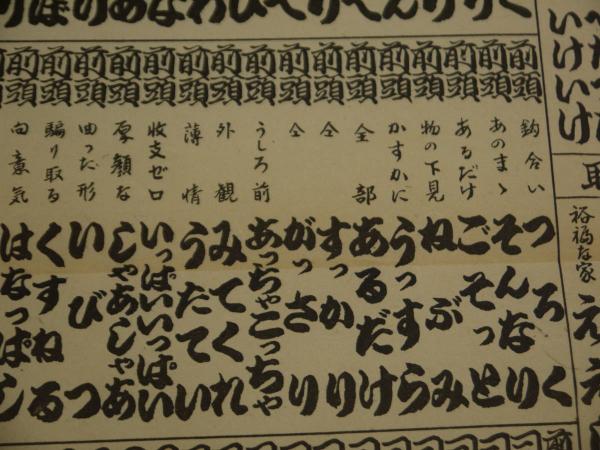 いけいけ
裕福な家
前頭 釣合い つろく
前頭 あのまゝ そんなり
前頭 あるだけ ごそっと
前頭 物の下見 ねぶみ
前頭 かすかに うっすら
前頭 全部 あるだけ
前頭 仝 すっかり
前頭 仝 がっさり
前頭 うしろ前 あっちゃこっちゃ
前頭 外観 みてくれ
前頭 薄情 うたてい
前頭 収支ゼロ いっぱいいっぱい
前頭 厚顔な しゃあしゃあ
前頭 曲った形 いびつ
前頭 騙り取る くすねる
前頭 向意気 はなっぱし